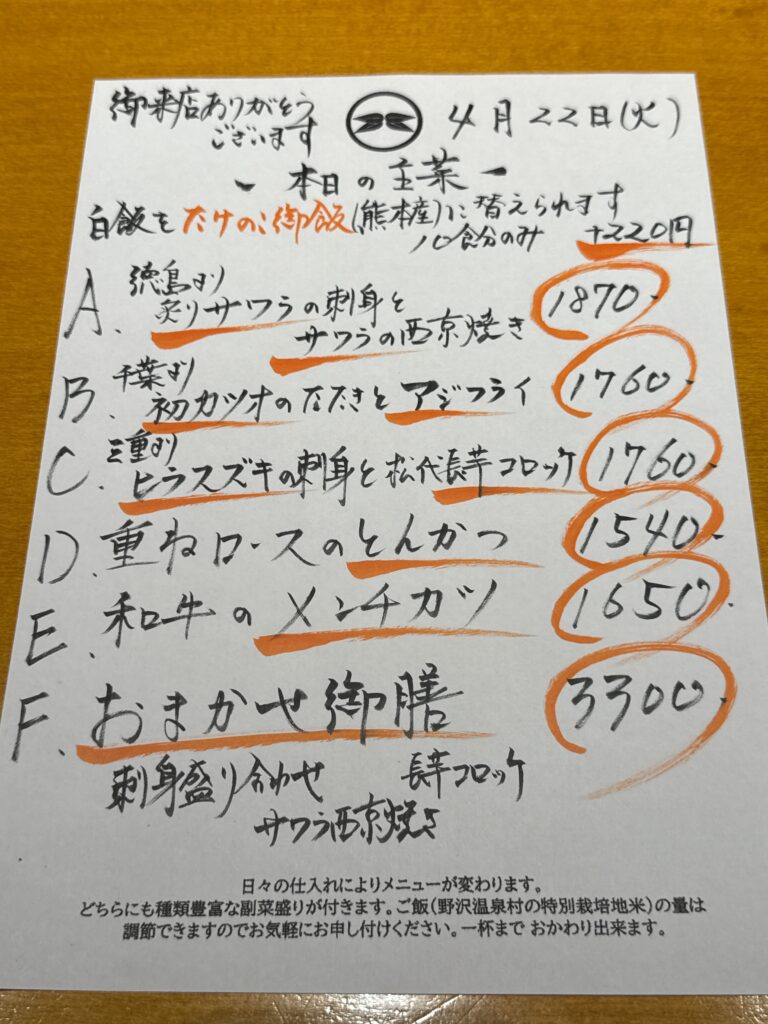 御来店ありがとう
ございます
4月22日(火)
ー 本日の主菜 ー
白飯を たけのこ御飯(熊本産)に替えられます
10食分のみ +220円
A. 徳島より
炙りサワラの刺身と
サワラの西京焼き 1870.
B. 千葉より
初カツオのたたきと アジフライ 1760.
C. 三重より
ヒラスズキの刺身と松代長芋コロッケ 1760.
D. 重ねロースのとんかつ 1540.
E. 和牛のメンチカツ 1650.
F. おまかせ御膳 3300.
刺身盛り合わせ 長芋コロッケ
サワラ西京焼き
日々の仕入れによりメニューが変わります。
どちらにも種類豊富な副菜盛りが付きます。ご飯(野沢温泉村の特別栽培地米)の量は
調節できますのでお気軽にお申し付けください。一杯まで おかわり出来ます。